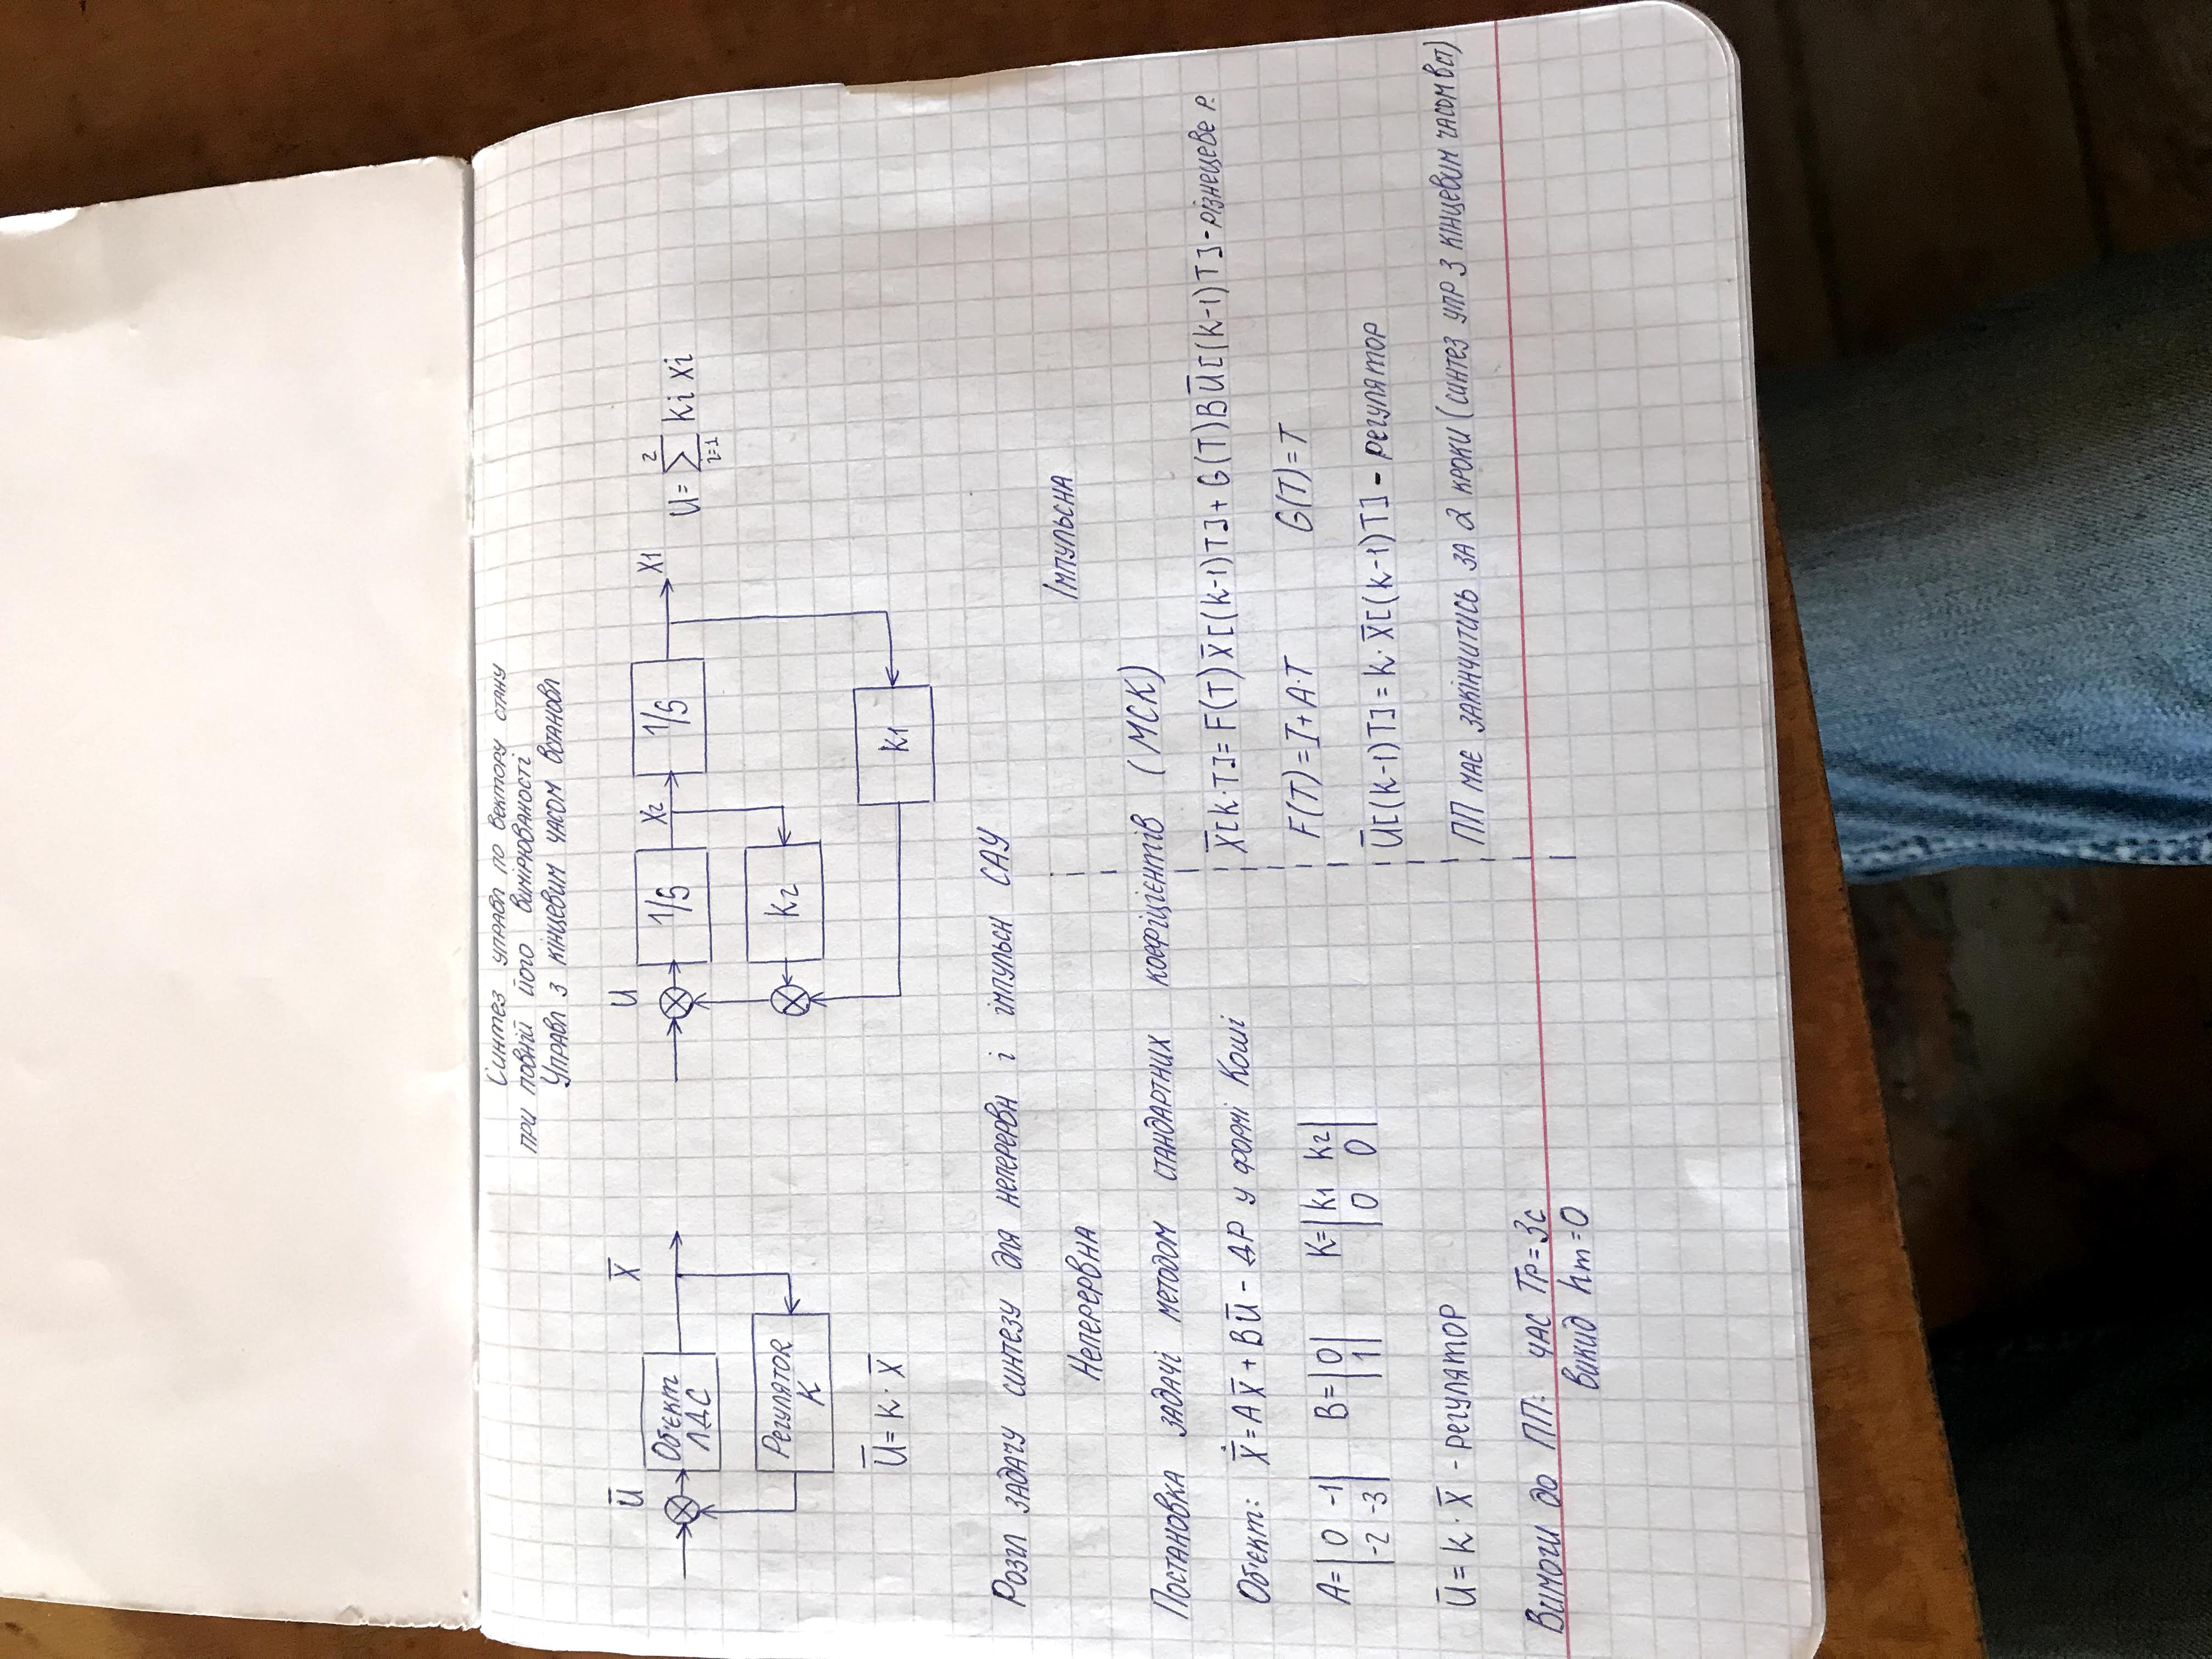 Синтез управл по вектору стану
при повній його вимірюваності
Управл з кінцевим часом встановл
Ū
X̄
Об'єкт
ЛДС
Регулятор
K
Ū = K · X̄
U
1/S
X2
1/S
X1
K2
K1
U = ∑ ki xi
2
i=1
Розгл задачу синтезу для неперервн і імпульсн САУ
Неперервна
Імпульсна
Постановка задачі методом стандартних коефіцієнтів (МСК)
Об'єкт: Ẋ̄ = A X̄ + B Ū - ДР у формі Коші
A = | 0 -1 |
| -2 -3 |
B = | 0 |
| 1 |
K = | k1 k2 |
| 0 0 |
Ū = K · X̄ - регулятор
Вимоги до ПП: час Tp = 3c
викид hm = 0
X̄[K·T] = F(T) X̄[(K-1)T] + G(T) B Ū[(K-1)T] - різнецеве р.
F(T) = I + A·T
G(T) = T
Ū[(K-1)T] = K · X̄[(K-1)T] - регулятор
ПП має закінчитись за 2 кроки (синтез упр з кінцевим часом вст)